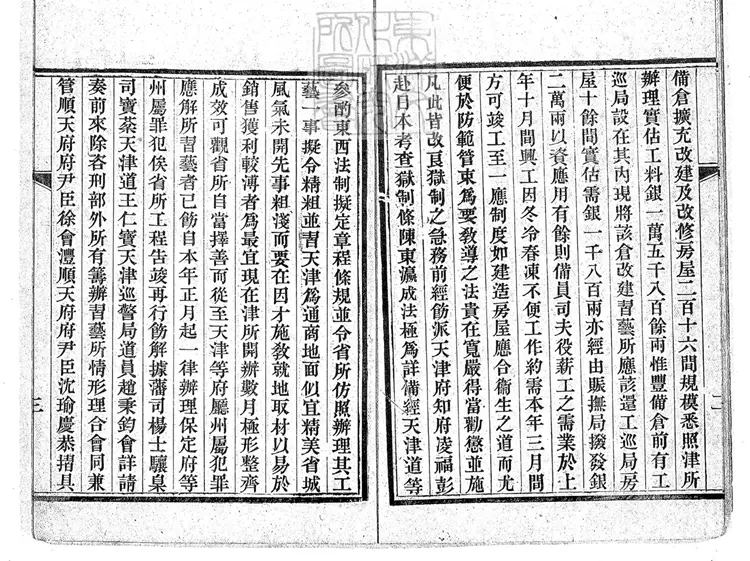 備倉擴充改建及改修房屋二百十六間規模悉照津所
辦理實估工料銀一萬五千八百餘兩惟豐備倉前有工
巡局設在其內現將該倉改建習藝所應該還工巡局房
屋十餘間實估需銀一千八百兩亦經由賑撫局撥發銀
二萬兩以資應用有餘則備員司夫役薪工之需業於上
年十月間興工因冬冷春凍不便工作約需本年三月間
方可竣工至一應制度如建造房屋應合衞生之道而尤
便於防範管束爲要敎導之法貴在寬嚴得當勸懲並施
凡此皆改良獄制之急務前經飭派天津府知府凌福彭
赴日本考查獄制條陳東瀛成法極爲詳備經天津道等
參酌東西法制擬定章程條規並令省所仿照辦理其工
藝一事擬令精粗並習天津爲通商地面似宜精美省城
風氣未開先事粗淺而要在因才施敎就地取材以易於
銷售獲利較溥者爲最宜現在津所開辦數月極形整齊
成效可觀省所自當擇善而從至天津等府廳州屬犯罪
應解所習藝者已飭自本年正月起一律辦理保定府等
州屬罪犯俟省所工程告竣再行飭解據藩司楊士驤臬
司寶棻天津道王仁寶天津巡警局道員趙秉鈞會詳請
奏前來除咨刑部外所有籌辦習藝所情形理合會同兼
管順天府府尹臣徐會灃順天府府尹臣沈瑜慶恭摺具
二
三